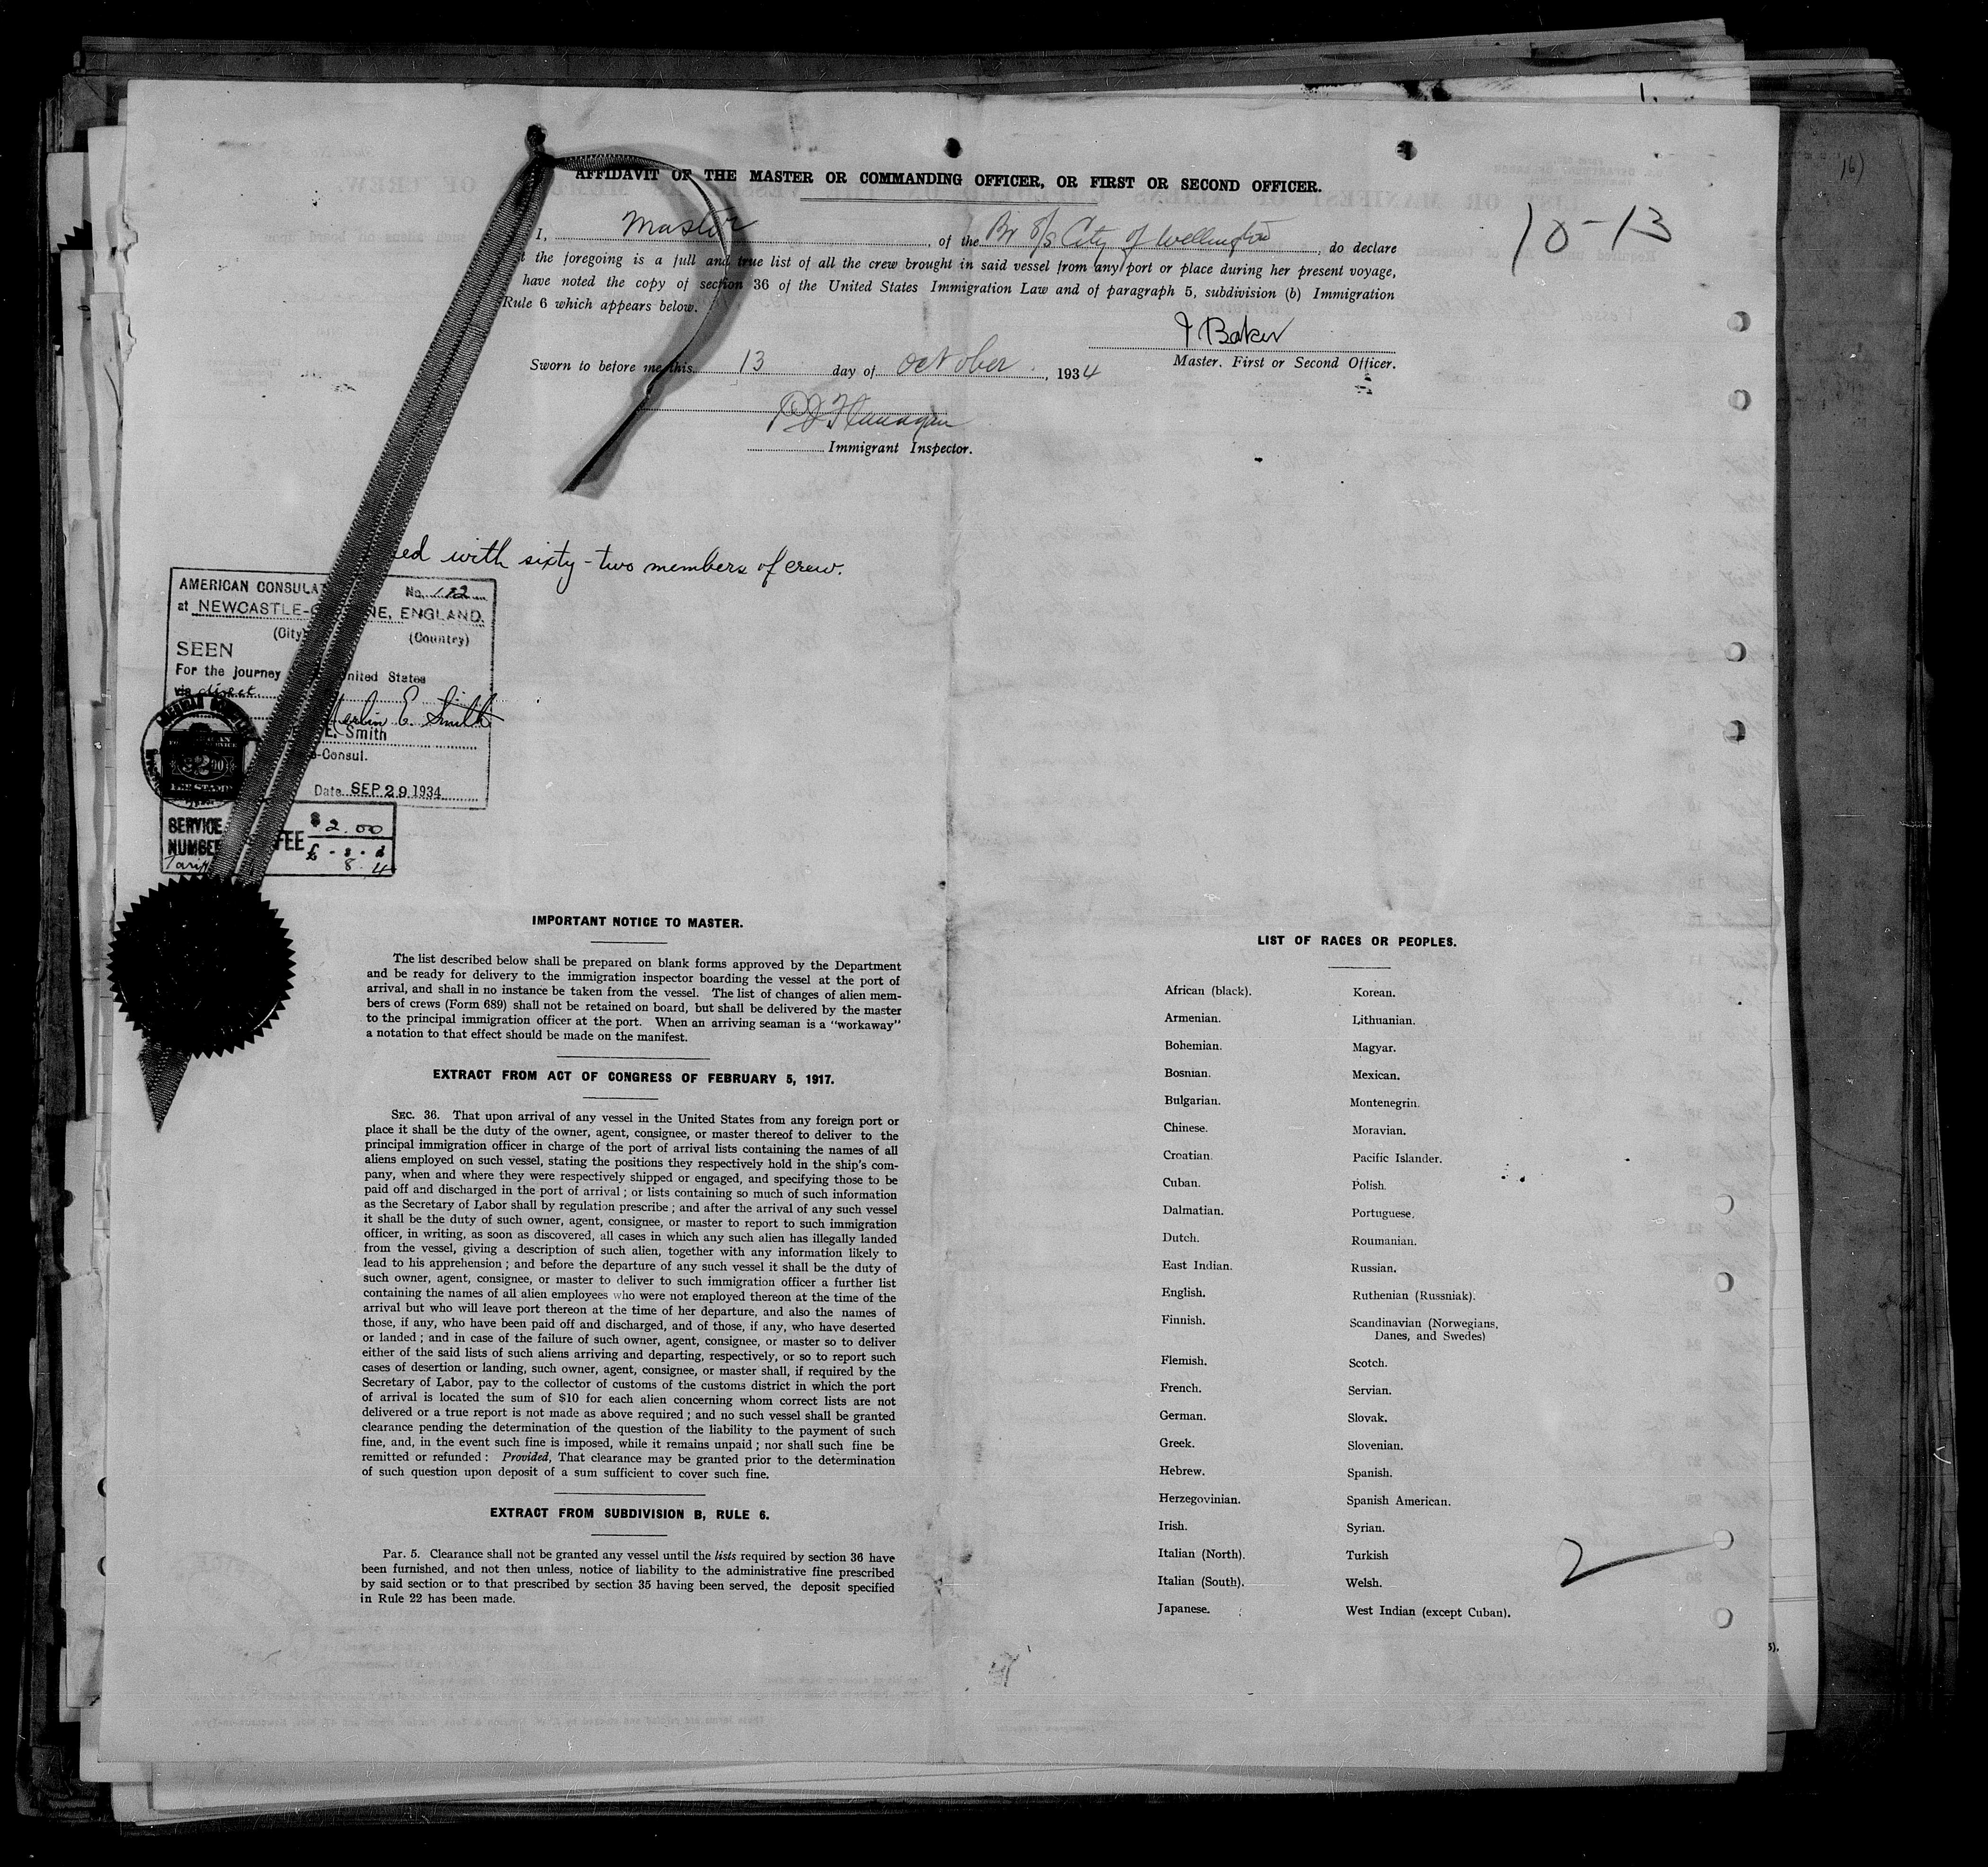 1.
16)
AFFIDAVIT OF THE MASTER OR COMMANDING OFFICER, OR FIRST OR SECOND OFFICER.
10-13
I, Master, of the Br S/S City of Wellington, do declare
t the foregoing is a full and true list of all the crew brought in said vessel from any port or place during her present voyage,
have noted the copy of section 36 of the United States Immigration Law and of paragraph 5, subdivision (b) Immigration
Rule 6 which appears below.
Baker
Master. First or Second Officer.
Sworn to before me this 13 day of October, 1934
Flanagan
Immigrant Inspector.
ed with sixty-two members of crew.
AMERICAN CONSULAT No. 182
at NEWCASTLE- NE, ENGLAND.
(City) (Country)
SEEN
For the journey nited States
via direct
E. Smith
E. Smith
-Consul.
Date SEP 29 1934
SERVICE
NUMBE FEE $ 2.00
Tariff £ . s . d
8 . 4
IMPORTANT NOTICE TO MASTER.
The list described below shall be prepared on blank forms approved by the Department
and be ready for delivery to the immigration inspector boarding the vessel at the port of
arrival, and shall in no instance be taken from the vessel. The list of changes of alien mem-
bers of crews (Form 689) shall not be retained on board, but shall be delivered by the master
to the principal immigration officer at the port. When an arriving seaman is a "workaway"
a notation to that effect should be made on the manifest.
EXTRACT FROM ACT OF CONGRESS OF FEBRUARY 5, 1917.
SEC. 36. That upon arrival of any vessel in the United States from any foreign port or
place it shall be the duty of the owner, agent, consignee, or master thereof to deliver to the
principal immigration officer in charge of the port of arrival lists containing the names of all
aliens employed on such vessel, stating the positions they respectively hold in the ship's com-
pany, when and where they were respectively shipped or engaged, and specifying those to be
paid off and discharged in the port of arrival; or lists containing so much of such information
as the Secretary of Labor shall by regulation prescribe; and after the arrival of any such vessel
it shall be the duty of such owner, agent, consignee, or master to report to such immigration
officer, in writing, as soon as discovered, all cases in which any such alien has illegally landed
from the vessel, giving a description of such alien, together with any information likely to
lead to his apprehension; and before the departure of any such vessel it shall be the duty of
such owner, agent, consignee, or master to deliver to such immigration officer a further list
containing the names of all alien employees who were not employed thereon at the time of the
arrival but who will leave port thereon at the time of her departure, and also the names of
those, if any, who have been paid off and discharged, and of those, if any, who have deserted
or landed; and in case of the failure of such owner, agent, consignee, or master so to deliver
either of the said lists of such aliens arriving and departing, respectively, or so to report such
cases of desertion or landing, such owner, agent, consignee, or master shall, if required by the
Secretary of Labor, pay to the collector of customs of the customs district in which the port
of arrival is located the sum of $10 for each alien concerning whom correct lists are not
delivered or a true report is not made as above required; and no such vessel shall be granted
clearance pending the determination of the question of the liability to the payment of such
fine, and, in the event such fine is imposed, while it remains unpaid; nor shall such fine be
remitted or refunded: Provided, That clearance may be granted prior to the determination
of such question upon deposit of a sum sufficient to cover such fine.
EXTRACT FROM SUBDIVISION B, RULE 6.
Par. 5. Clearance shall not be granted any vessel until the lists required by section 36 have
been furnished, and not then unless, notice of liability to the administrative fine prescribed
by said section or to that prescribed by section 35 having been served, the deposit specified
in Rule 22 has been made.
LIST OF RACES OR PEOPLES.
African (black). Korean.
Armenian. Lithuanian.
Bohemian. Magyar.
Bosnian. Mexican.
Bulgarian. Montenegrin.
Chinese. Moravian.
Croatian. Pacific Islander.
Cuban. Polish.
Dalmatian. Portuguese.
Dutch. Roumanian.
East Indian. Russian.
English. Ruthenian (Russniak).
Finnish. Scandinavian (Norwegians,
Danes, and Swedes)
Flemish. Scotch.
French. Servian.
German. Slovak.
Greek. Slovenian.
Hebrew. Spanish.
Herzegovinian. Spanish American.
Irish. Syrian.
Italian (North). Turkish
Italian (South). Welsh.
Japanese. West Indian (except Cuban).
2